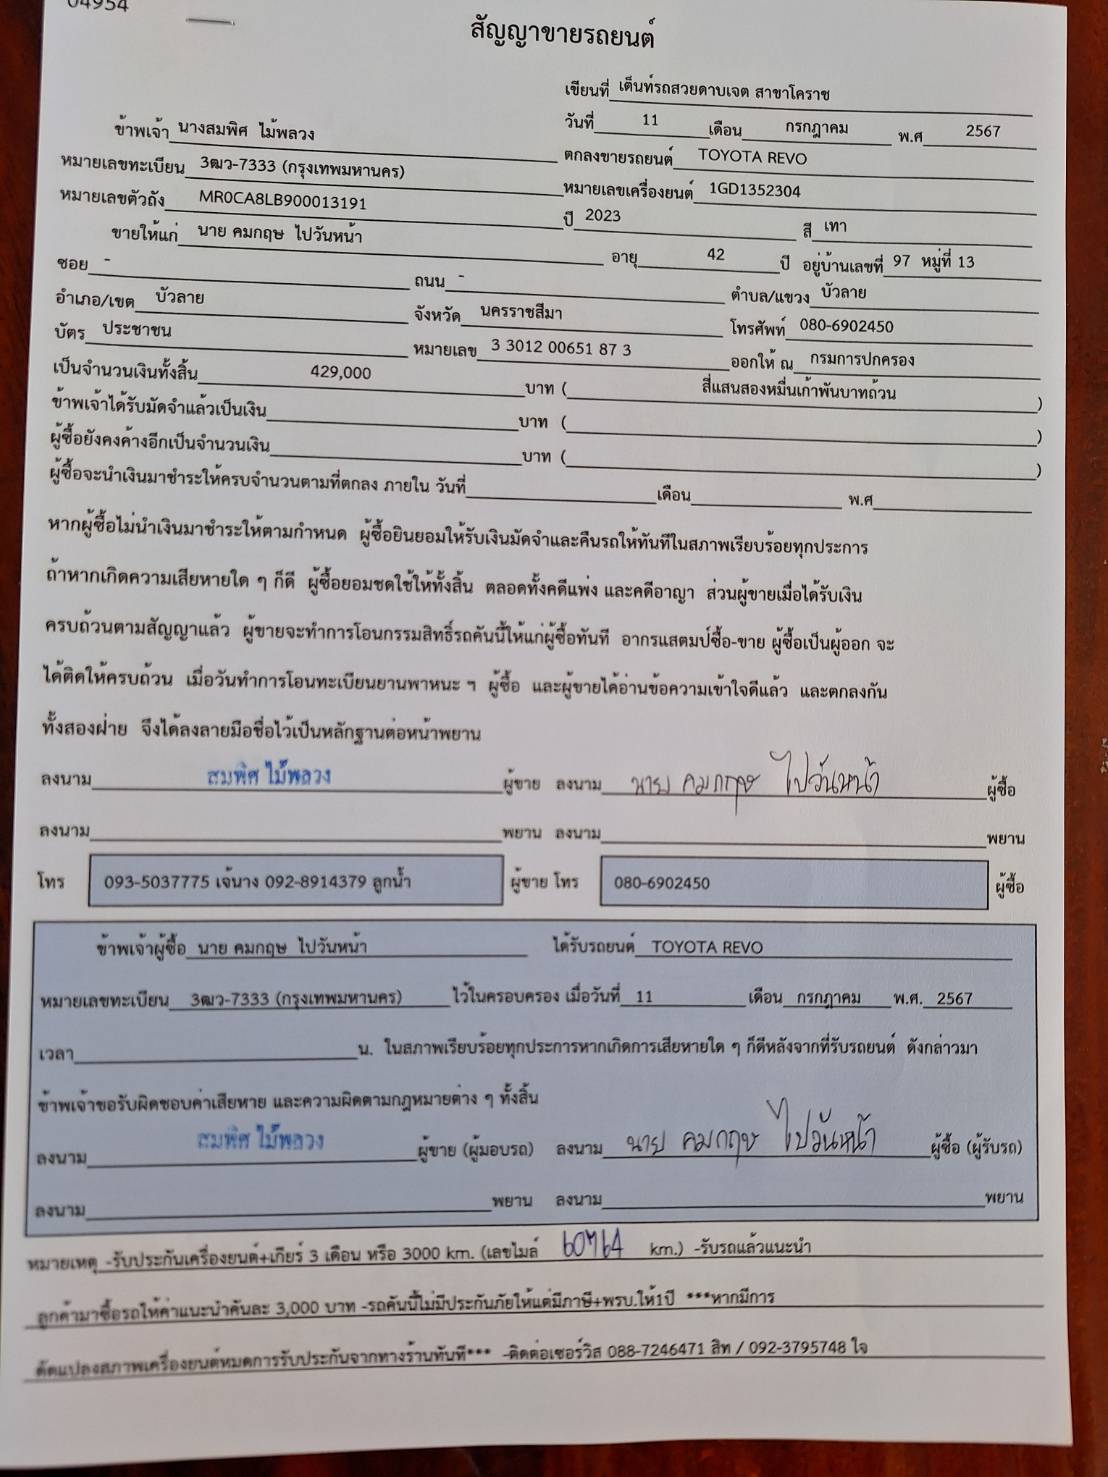 04954
สัญญาขายรถยนต์
เขียนที่ เต็นท์รถสวยดาบเจต สาขาโคราช
วันที่ 11 เดือน กรกฎาคม พ.ศ 2567
ข้าพเจ้า นางสมพิศ ไม้พลวง ตกลงขายรถยนต์ TOYOTA REVO
หมายเลขทะเบียน 3ฒว-7333 (กรุงเทพมหานคร) หมายเลขเครื่องยนต์ 1GD1352304
หมายเลขตัวถัง MR0CA8LB900013191 ปี 2023 สี เทา
ขายให้แก่ นาย คมกฤษ ไปวันหน้า อายุ 42 ปี อยู่บ้านเลขที่ 97 หมู่ที่ 13
ซอย - ถนน - ตำบล/แขวง บัวลาย
อำเภอ/เขต บัวลาย จังหวัด นครราชสีมา โทรศัพท์ 080-6902450
บัตร ประชาชน หมายเลข 3 3012 00651 87 3 ออกให้ ณ กรมการปกครอง
เป็นจำนวนเงินทั้งสิ้น 429,000 บาท ( สี่แสนสองหมื่นเก้าพันบาทถ้วน )
ข้าพเจ้าได้รับมัดจำแล้วเป็นเงิน บาท ( )
ผู้ซื้อยังคงค้างอีกเป็นจำนวนเงิน บาท ( )
ผู้ซื้อจะนำเงินมาชำระให้ครบจำนวนตามที่ตกลง ภายใน วันที่ เดือน พ.ศ
หากผู้ซื้อไม่นำเงินมาชำระให้ตามกำหนด ผู้ซื้อยินยอมให้รับเงินมัดจำและคืนรถให้ทันทีในสภาพเรียบร้อยทุกประการ
ถ้าหากเกิดความเสียหายใด ๆ ก็ดี ผู้ซื้อยอมชดใช้ให้ทั้งสิ้น ตลอดทั้งคดีแพ่ง และคดีอาญา ส่วนผู้ขายเมื่อได้รับเงิน
ครบถ้วนตามสัญญาแล้ว ผู้ขายจะทำการโอนกรรมสิทธิ์รถคันนี้ให้แก่ผู้ซื้อทันที อากรแสตมป์ซื้อ-ขาย ผู้ซื้อเป็นผู้ออก จะ
ได้ติดให้ครบถ้วน เมื่อวันทำการโอนทะเบียนยานพาหนะ ฯ ผู้ซื้อ และผู้ขายได้อ่านข้อความเข้าใจดีแล้ว และตกลงกัน
ทั้งสองฝ่าย จึงได้ลงลายมือชื่อไว้เป็นหลักฐานต่อหน้าพยาน
ลงนาม สมพิศ ไม้พลวง ผู้ขาย ลงนาม นาย คมกฤษ ไปวันหน้า ผู้ซื้อ
ลงนาม พยาน ลงนาม พยาน
โทร 093-5037775 เจ้นาง 092-8914379 ลูกน้ำ ผู้ขาย โทร 080-6902450 ผู้ซื้อ
ข้าพเจ้าผู้ซื้อ นาย คมกฤษ ไปวันหน้า ได้รับรถยนต์ TOYOTA REVO
หมายเลขทะเบียน 3ฒว-7333 (กรุงเทพมหานคร) ไว้ในครอบครอง เมื่อวันที่ 11 เดือน กรกฎาคม พ.ศ. 2567
เวลา น. ในสภาพเรียบร้อยทุกประการหากเกิดการเสียหายใด ๆ ก็ดีหลังจากที่รับรถยนต์ ดังกล่าวมา
ข้าพเจ้าขอรับผิดชอบค่าเสียหาย และความผิดตามกฎหมายต่าง ๆ ทั้งสิ้น
ลงนาม สมพิศ ไม้พลวง ผู้ขาย (ผู้มอบรถ) ลงนาม นาย คมกฤษ ไปวันหน้า ผู้ซื้อ (ผู้รับรถ)
ลงนาม พยาน ลงนาม พยาน
หมายเหตุ -รับประกันเครื่องยนต์+เกียร์ 3 เดือน หรือ 3000 km. (เลขไมล์ 60764 km.) -รับรถแล้วแนะนำ
ลูกค้ามาซื้อรถให้ค่าแนะนำคันละ 3,000 บาท -รถคันนี้ไม่มีประกันภัยให้แต่มีภาษี+พรบ.ให้1ปี ***หากมีการ
ดัดแปลงสภาพเครื่องยนต์หมดการรับประกันจากทางร้านทันที*** -ติดต่อเซอร์วิส 088-7246471 สิท / 092-3795748 ใจ